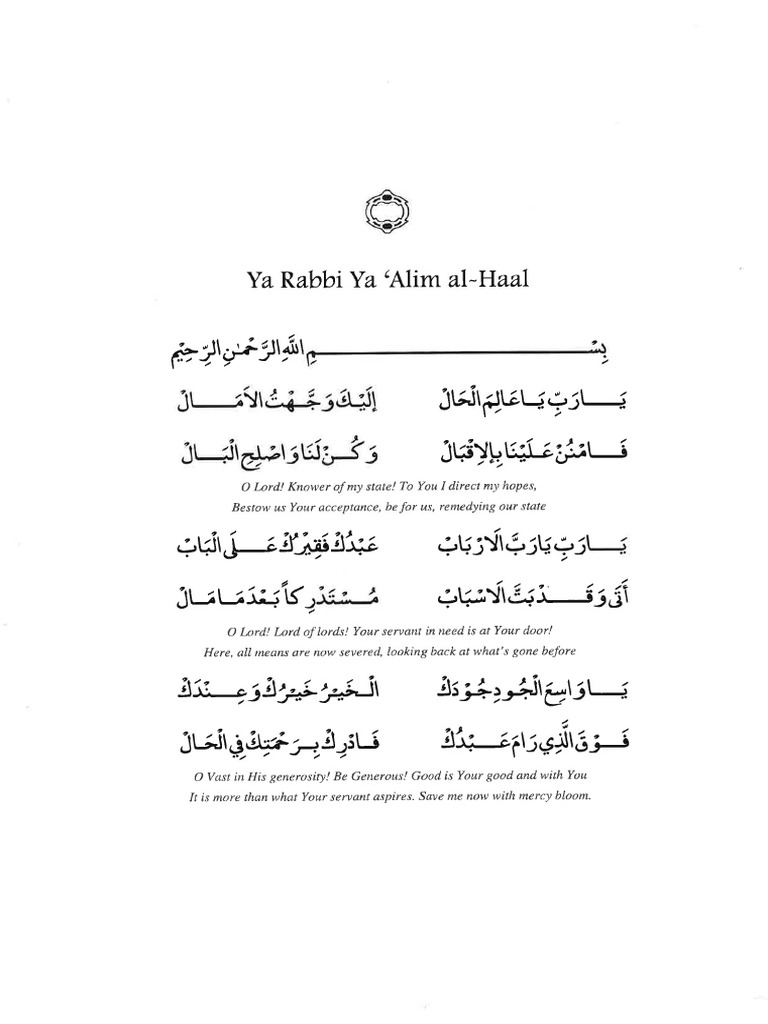 Ya Rabbi Ya ‘Alim al-Haal
بِسْمِ اللَّهِ الرَّحْمٰنِ الرَّحِيْمِ
يَارَبِّ يَاعَالِمَ الْحَالْ إِلَيْكَ وَجَّهْتُ الأَمَالْ
فَامْنُنْ عَلَيْنَا بِالإِقْبَالْ وَكُنْ لَنَا وَاصْلِحِ الْبَالْ
O Lord! Knower of my state! To You I direct my hopes,
Bestow us Your acceptance, be for us, remedying our state
يَارَبِّ يَارَبَّ الَارْبَابْ عَبْدُكْ فَقِيْرُكْ عَلَى الْبَابْ
أَتَى وَقَدْ بَتَّ الَاسْبَابْ مُسْتَدْرِكاً بَعْدَ مَا مَالْ
O Lord! Lord of lords! Your servant in need is at Your door!
Here, all means are now severed, looking back at what's gone before
يَاوَاسِعَ الْجُودِ جُودَكْ الْخَيْرُ خَيْرُكْ وَعِنْدَكْ
فَوْقَ الَّذِي رَامَ عَبْدُكْ فَادْرِكْ بِرَحْمَتِكْ فِي الْحَالْ
O Vast in His generosity! Be Generous! Good is Your good and with You
It is more than what Your servant aspires. Save me now with mercy bloom.